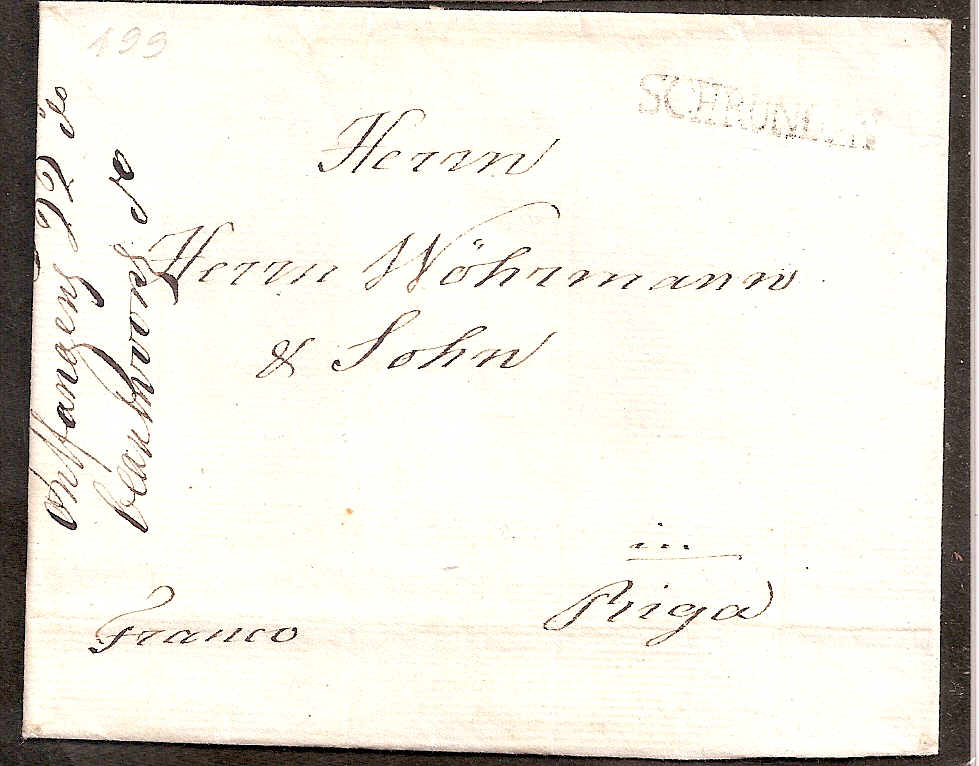 199
SCHRUNDEN
Herrn
Herrn Wöhrmann
& Sohn
in
Riga
Franco
ontfangen 22 do
beantwoord do